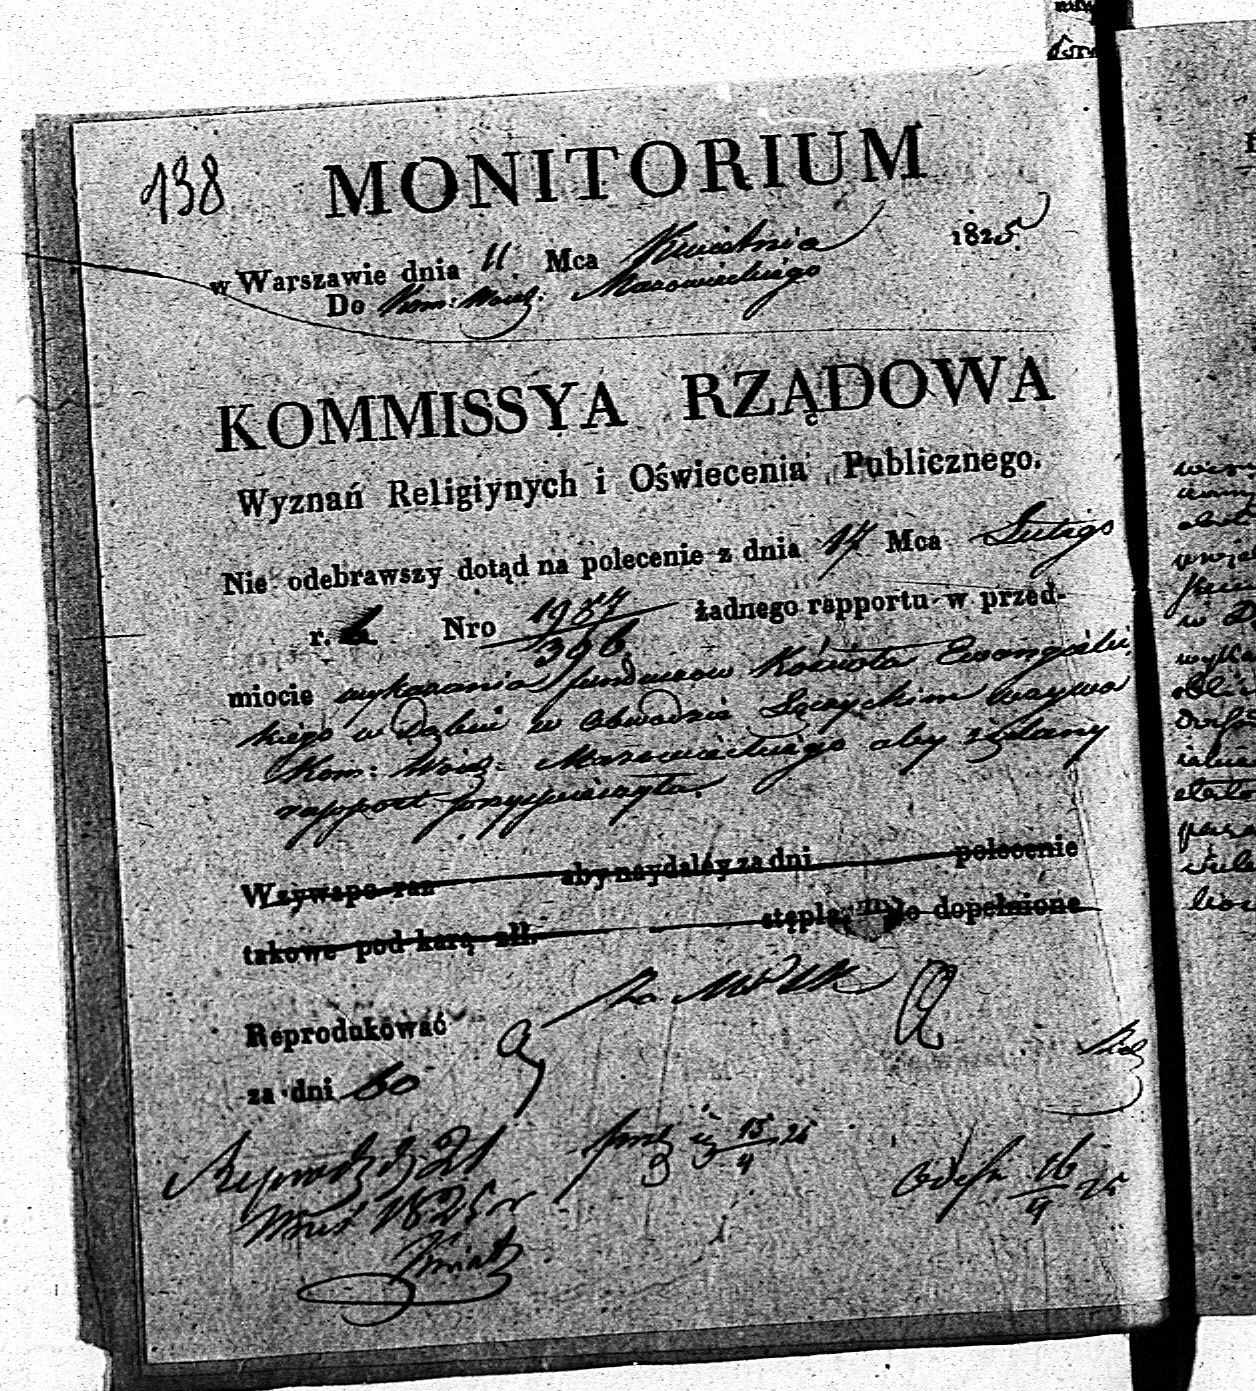 138
MONITORIUM
w Warszawie dnia 11. Mca Kwietnia 1825.
Do Kom: Woiew: Mazowieckiego
KOMMISSYA RZĄDOWA
Wyznań Religiynych i Oświecenia Publicznego.
Nie odebrawszy dotąd na polecenie z dnia 14 Mca Lutego
r. Nro 1957/396 żadnego rapportu w przed-
miocie wykazania funduszów Kościoła Ewangelic
kiego w Dąbiu w Obwodzie Łęczyckim wzywa
Kom: Woie: Mazowieckiego aby żądany
rapport przyspieszyła.
Wzywa po raz aby naydaléy za dni polecenie
takowe pod karą złł. stępla, było dopełnione
Reprodukować
za dni 60
1825 r
15/4 25
16/4 25